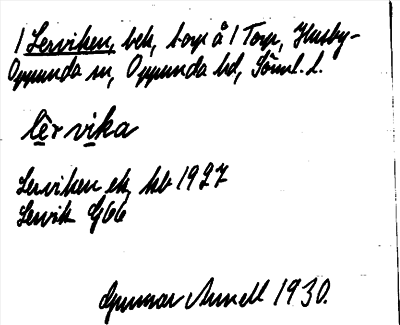 1 Lerviken, beb, torp å 1 Torp, Husby-
Oppunda sn, Oppunda hd, Söml. l.
lêr vika
Lerviken ek, hb 1927
Lervik G66
Gunnar Annell 1930.